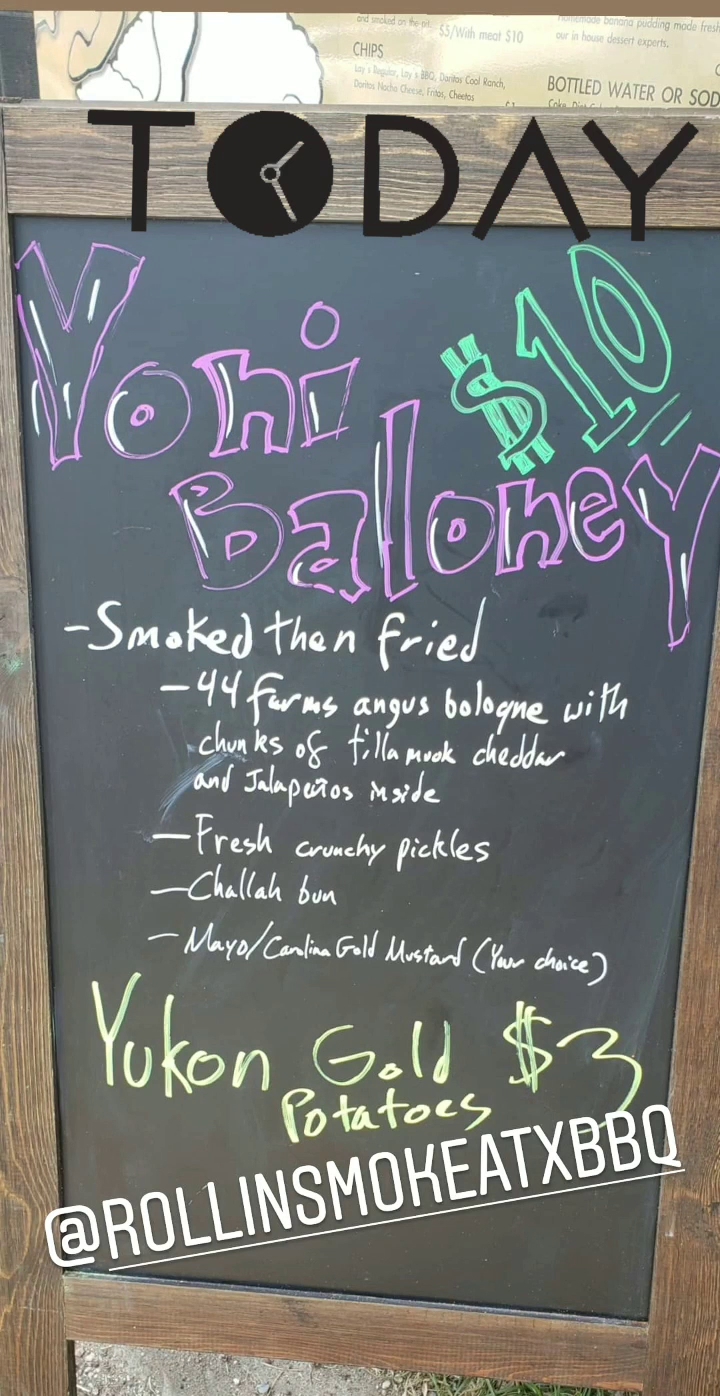 and smoked on the pit.
$5/With meat $10
CHIPS
Lay's Regular, Lay's BBQ, Doritos Cool Ranch,
Doritos Nacho Cheese, Fritos, Cheetos
homemade banana pudding made fresh
our in house dessert experts.
BOTTLED WATER OR SOD
TODAY
Yoni $10
Baloney
-Smoked then fried
-44 farms angus bologne with
chunks of tillamook cheddar
and Jalapeños inside
-Fresh crunchy pickles
-Challah bun
-Mayo/Carolina Gold Mustard (Your choice)
Yukon Gold $3
Potatoes
@ROLLINSMOKEATXBBQ